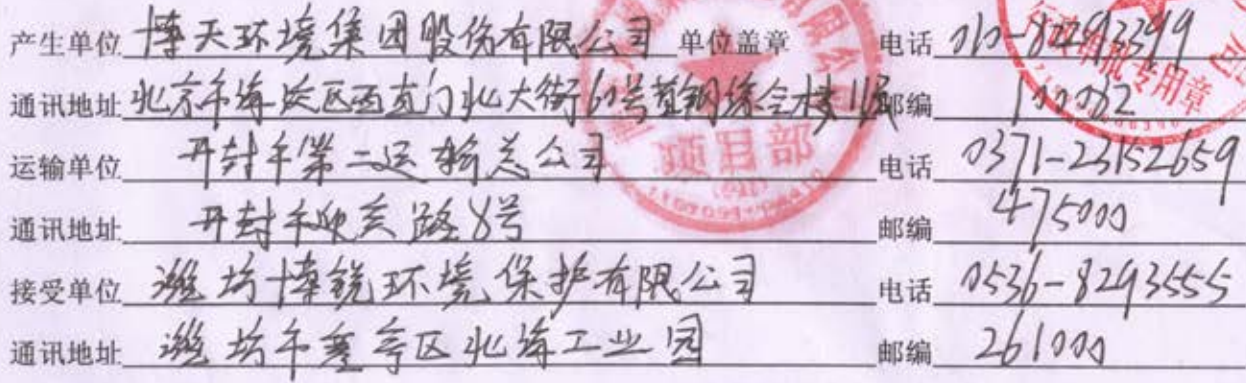 产生单位 博天环境集团股份有限公司 单位盖章 电话 010-82293399
通讯地址 北京市海淀区西直门北大街60号首钢综合楼11层 邮编 100082
运输单位 开封市第二运输总公司 电话 0371-23152659
通讯地址 开封市迎宾路8号 邮编 475000
接受单位 潍坊博锐环境保护有限公司 电话 0536-8293555
通讯地址 潍坊市寒亭区北海工业园 邮编 261000
有限公司
项目部
审批专用章